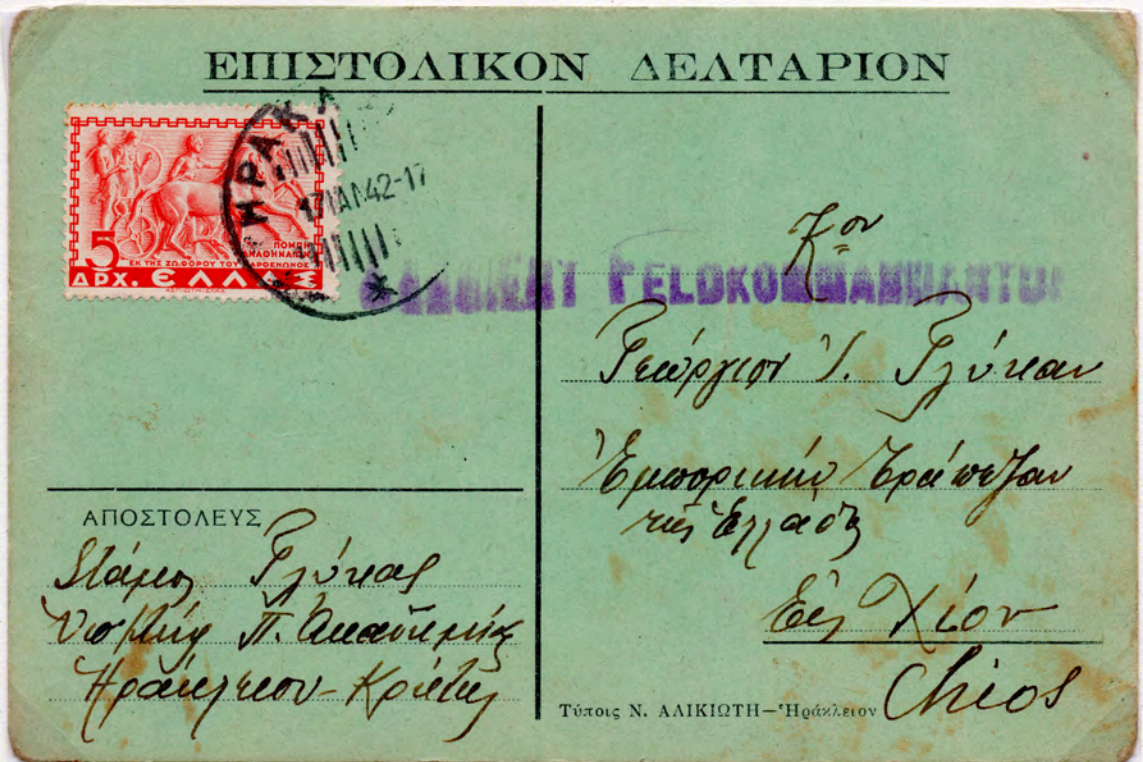 ΕΠΙΣΤΟΛΙΚΟΝ ΔΕΛΤΑΡΙΟΝ
ΗΡΑΚΛ
17 ΙΑΝ 42-17
ΠΟΜΠΗ
ΠΑΝΑΘΗΝΑΙΩΝ
ΕΚ ΤΗΣ ΖΩΦΟΡΟΥ ΤΟΥ ΠΑΡΘΕΝΩΝΟΣ
5
ΔΡΧ. ΕΛΛΑΣ
FELDKOMMANDANTUR
Κον
Γεώργιον Ι. Γλύκαν
Ἐμπορικήν Τράπεζαν
τῆς Ἑλλάδος
Εἰς Χίον
Chios
ΑΠΟΣΤΟΛΕΥΣ
Stάμος Γλύκας
Π. Ἀκαδημίας
Ἡρακλείου-Κρήτης
Τύποις Ν. ΑΛΙΚΙΩΤΗ—Ἡράκλειον